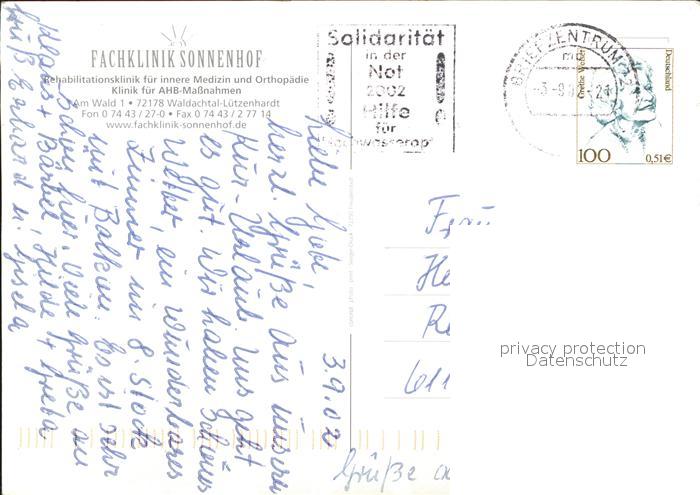 FACHKLINIK SONNENHOF
Rehabilitationsklinik für innere Medizin und Orthopädie
Klinik für AHB-Maßnahmen
Am Wald 1 • 72178 Waldachtal-Lützenhardt
Fon 0 74 43 / 27-0 • Fax 0 74 43 / 2 77 14
www.fachklinik-sonnenhof.de
Solidarität
in der
Not
2002
Hilfe
für
BRIEFZENTRUM 72
Grethe Weiser
Deutschland
100
0,51€
3.9.02
Liebe
herzl. Grüße aus unserem
Kur-Urlaub. Uns geht
es gut. Wir haben schönes
Wetter, ein wunderbares
Zimmer im 8. Stock
mit Balkon. Es ist sehr
schön hier. Viele Grüße an
Bärbel, Hilde +
Gruß Erhard u. Gisela
Frau
He
Re
611
Grüße
privacy protection
Datenschutz